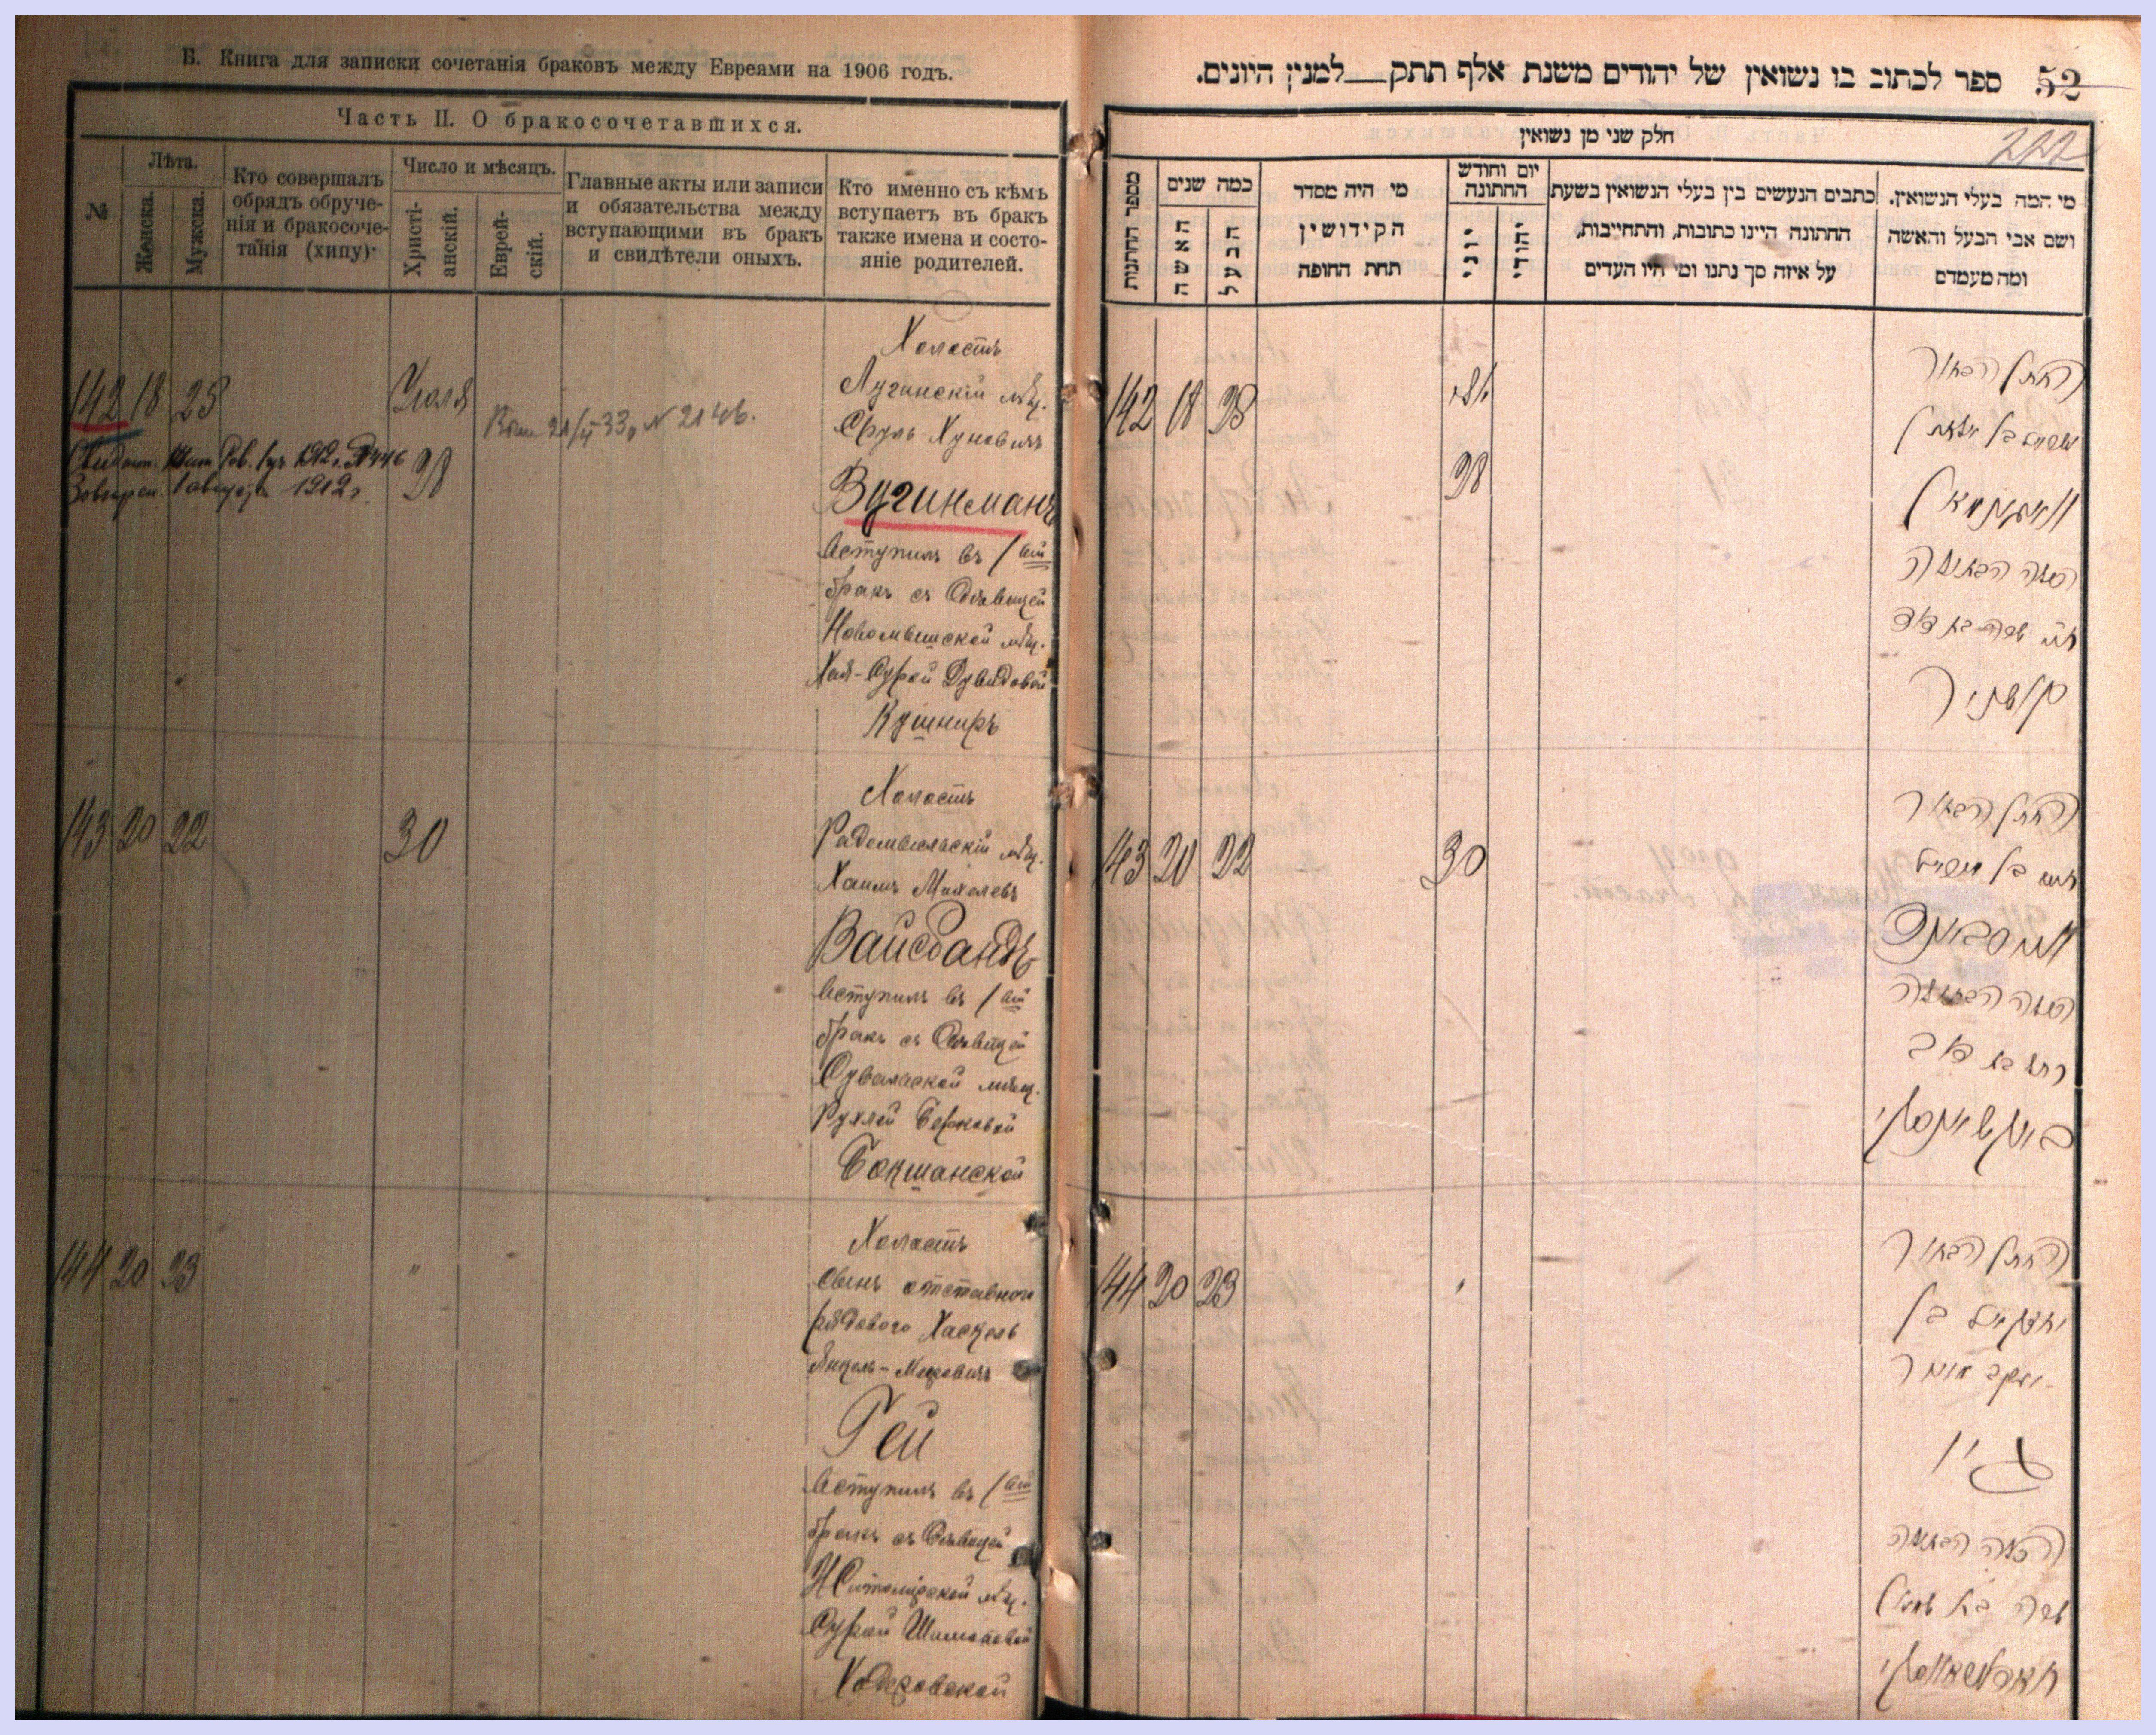 Б. Книга для записки сочетанія браковъ между Евреями на 1906 годъ.
Часть II. О бракосочетавшихся.
№
Лѣта.
Женска.
Мужска.
Кто совершалъ
обрядъ обруче-
нія и бракосоче-
танія (хипу)·
Число и мѣсяцъ.
Христі-
анскій.
Еврей-
скій.
Главные акты или записи
и обязательства между
вступающими въ бракъ
и свидѣтели оныхъ.
Кто именно съ кѣмъ
вступаетъ въ бракъ
также имена и состо-
яніе родителей.
142 18 28 Іюля
28
1912 г.
Холостъ
Лугинскій мѣщ.
Сруль Хуновичъ
Вугинманъ
вступилъ въ 1ый
бракъ съ Дѣвицей
мѣщ.
Хая-Сурой Дувидовой
Кушниръ
143 20 22 30
Холостъ
Радомысльскій мѣщ.
Хаимъ Михелевъ
Вайсбандъ
вступилъ въ 1ый
бракъ съ Дѣвицей
Сувалкской мѣщ.
Рухлей Берковой
Бокшанской
144 20 23 "
Холостъ
Сынъ отставного
рядового Хаскель
Янкель-Меровичъ
Гей
вступилъ въ 1ый
бракъ съ Дѣвицей
Житомірской мѣщ.
Сурой Шимоновой
Ходоровской
52 ספר לכתוב בו נשואין של יהודים משנת אלף תתק— למנין היונים.
222
חלק שני מן נשואין
מספר החתנות
כמה שנים
האשה
הבעל
מי היה מסדר
הקידושין
תחת החופה
יום וחודש
החתונה
יוני
יהודי
כתבים הנעשים בין בעלי הנשואין בשעת
החתונה היינו כתובות, והתחייבות,
על איזה סך נתנו ומי היו העדים
מי המה בעלי הנשואין.
ושם אבי הבעל והאשה
ומה מעמדם
142 18 28 יולי
28
החתן הבחור
ווגינמאן
הכלה הבתולה
חי' שרה בת דוד
קושניר
143 20 22 30
החתן הבחור
חיים בן
ווייסבאנד
הכלה הבתולה
רחל בת דוב
144 20 23
החתן הבחור
יחזקאל בן
יעקב מאיר
גיי
הכלה הבתולה
שרה בת שמעון